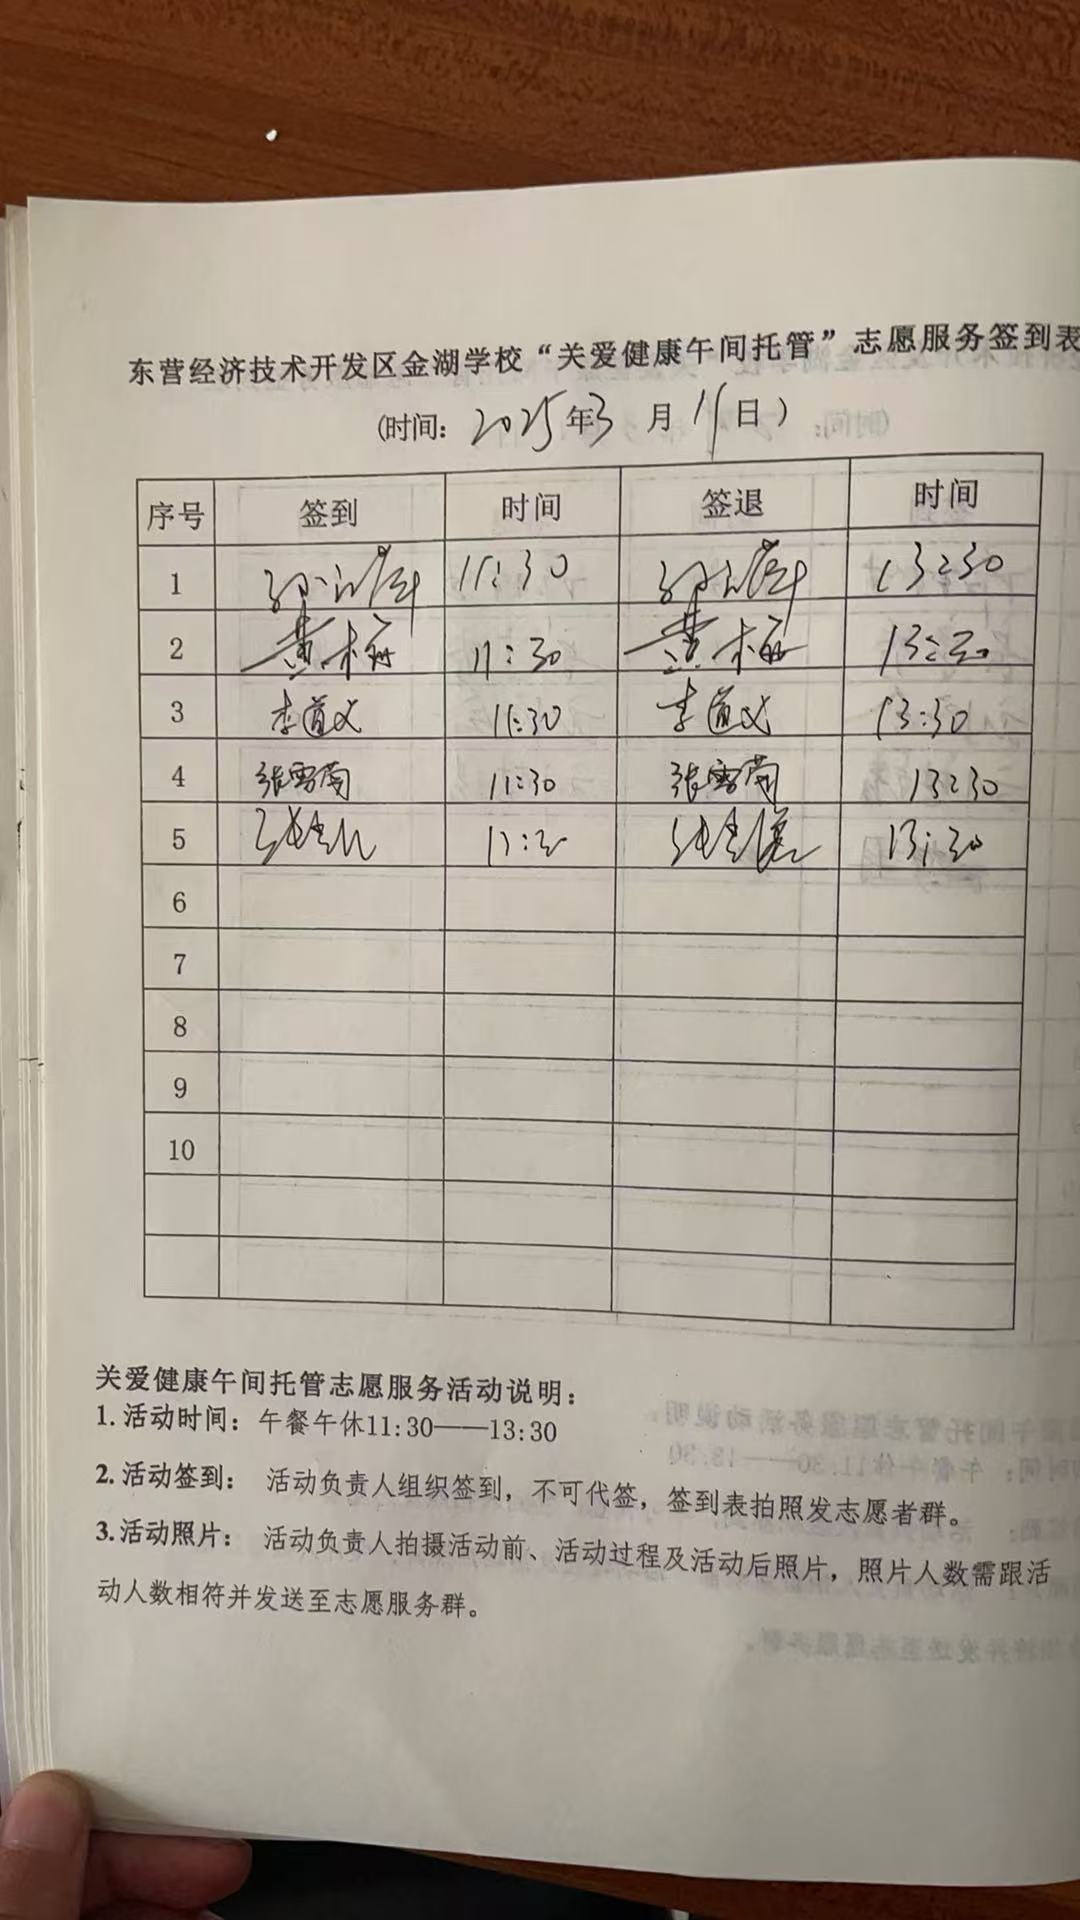 东营经济技术开发区金湖学校“关爱健康午间托管”志愿服务签到表
(时间: 2025年3月11日)
序号 签到 时间 签退 时间
1 11:30 13:30
2 黄梅 11:30 黄梅 13:30
3 李道义 11:30 李道义 13:30
4 张雪菊 11:30 张雪菊 13:30
5 11:30 13:30
6
7
8
9
10
关爱健康午间托管志愿服务活动说明:
1.活动时间: 午餐午休11:30——13:30
2.活动签到: 活动负责人组织签到，不可代签，签到表拍照发志愿者群。
3.活动照片: 活动负责人拍摄活动前、活动过程及活动后照片，照片人数需跟活
动人数相符并发送至志愿服务群。